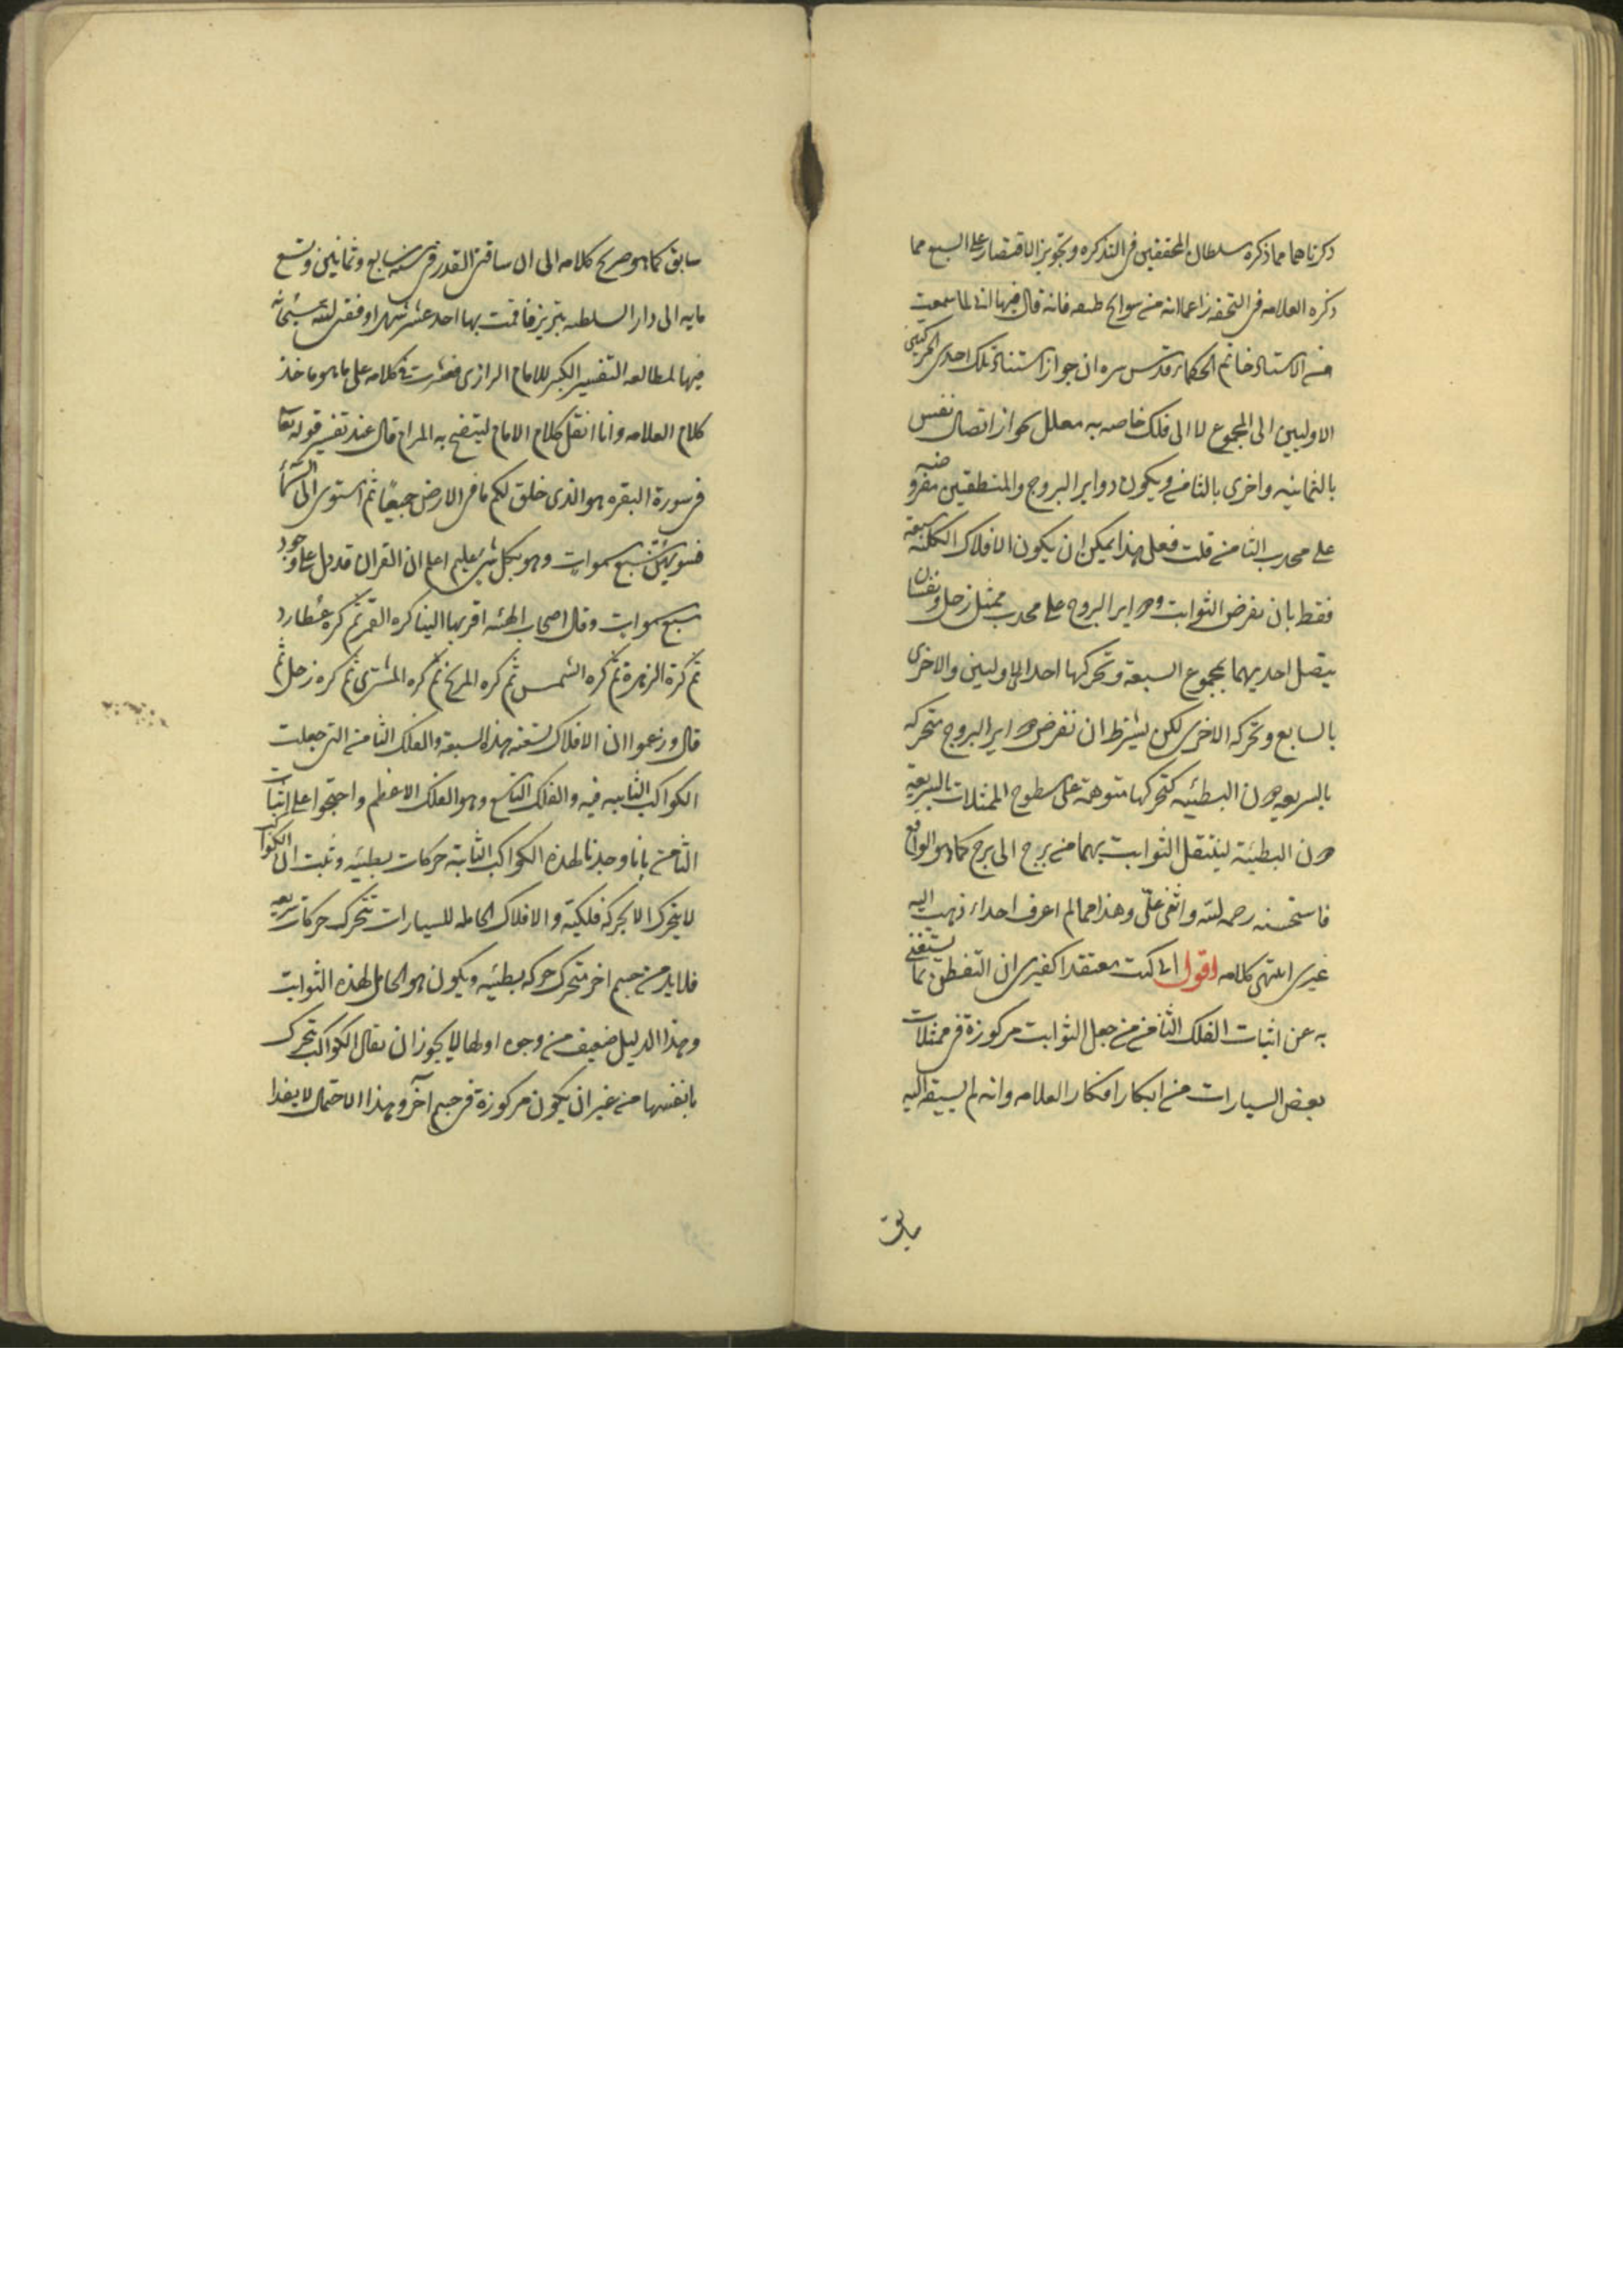 ذكرناهما مما ذكره سلطان المحققين في التذكره وتجويز الاقتصار على السبع مما
ذكره العلامه في التحفه زاعما انه من سوانح طبعه فانه قال فيها انى لما سمعت
من الاستاذ خاتم الحكماء قدس سره ان جواز استناد تلك احدى الحركتين
الاوليين الى المجموع لا الى فلك خاصه به معلل بجواز اتصال نفس
بالثمانيه واخرى بالثامن ويكون دواير البروج والمنطقتين مفروضه
على محدب الثامن قلت فعلى هذا يمكن ان يكون الافلاك الكلية سبعة
فقط بان نفرض الثوابت ودواير البروج على محدب ممثل زحل ونفسان
يتصل احديهما بمجموع السبعة وتحركها احدى الاوليين والاخرى
بالسابع وتحركه الاخرى لكن بشرط ان نفرض دواير البروج متحركه
بالسريعه دون البطيئه كتحركها متوهمة على سطوح الممثلات بالسريعة
دون البطيئة لينتقل الثوابت بهما من برج الى برج كما هو الواقع
فاستحسنه رحمه الله واثنى علىّ وهذا مما لم اعرف احداء ذهب اليه
غيرى انتهى كلامه اقول انى كنت معتقدا كغيرى ان التفطن بما يستغنى
به عن اثبات الفلك الثامن من جعل الثوابت مركوزة في ممثلات
بعض السيارات من ابكار افكار العلامه وانه لم يسبقه اليه
سابق
سابق كما هو صريح كلامه الى ان ساقنى القدر في سنه سابع وثمانين وتسع
مايه الى دار السلطنه تبريز فاقمت بها احد عشر شهرا وفقنى الله سبحانه
فيها لمطالعه التفسير الكبير للامام الرازى فعثرت في كلامه على ما هو ماخذ
كلام العلامه وانا انقل كلام الامام ليتضح به المرام قال عند تفسير قوله تعا
في سورة البقره هو الذى خلق لكم ما في الارض جميعًا ثم استوى الى السّماء
فسويهنّ سبع سموات وهو بكل شى عليم اعلم ان القران قد دل على وجود
سبع سموات وقال اصحاب الهيئه اقربها الينا كره القمر ثم كره عطارد
ثم كرة الزهرة ثم كره الشمس ثم كره المريخ ثم كره المشترى ثم كره زحل ثم
قال وزعموا ان الافلاك تسعة هذه السبعة والفلك الثامن التى جعلت
الكواكب الثابته فيه والفلك التاسع وهو الفلك الاعظم واحتجوا على اثبات
الثامن بانا وجدنا لهذه الكواكب الثابتة حركات بطيئه وثبت ان الكواكب
لا يتحرك الا بحركة فلكية والافلاك الحامله للسيارات تتحرك حركات سريعه
فلا بد من جسم اخر متحرك حركه بطيئه ويكون هو الحامل لهذه الثوابت
وهذا الدليل ضعيف من وجوه اولها لا يجوز ان يقال الكواكب تتحرك
بانفسها من غير ان يكون مركوزة في جسم آخر وهذا الاحتمال لا يفدا